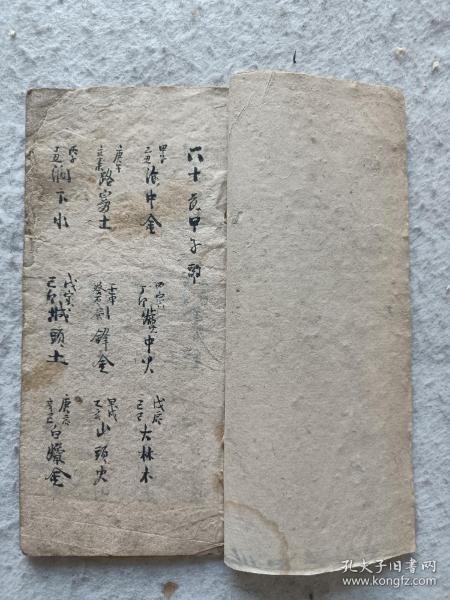 六十花甲子歌
甲子乙丑海中金
丙寅丁卯爐中火
戊辰己巳大林木
庚午辛未路旁土
壬申癸酉劍鋒金
甲戌乙亥山頭火
丙子丁丑澗下水
戊寅己卯城頭土
庚辰辛巳白蠟金
孔夫子旧书网
www.kongfz.com